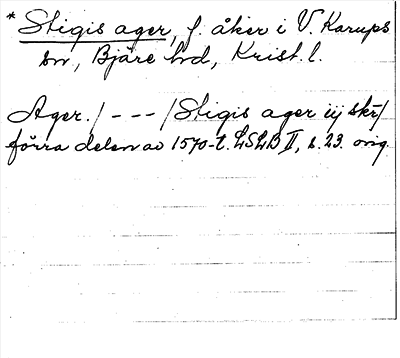 * Stigis ager, f. åker i V. Karups
sn, Bjäre hd, Krist. l.
Ager. / - - - / Stigis ager iij skr/
förra delen av 1570-t. LSLB II, s. 23. orig.